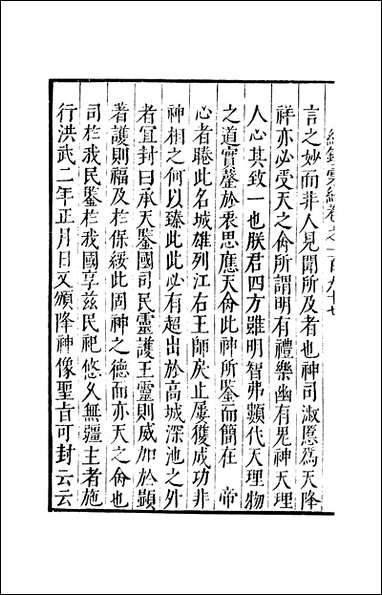 紀錄彙編卷之一百九十七
言之妙而非人見聞所及者也神司淑慝為天降
祥亦必受天之命所謂明有禮樂幽有鬼神天理
人心其致一也朕君四方雖明智弗類代天理物
之道實罄於衷思應天命此神所鑒而簡在 帝
心者睠此名城雄列江右王師戾止屢獲成功非
神相之何以臻此此必有超出於高城深池之外
者宜封曰承天鑒國司民靈護王靈則威加於顯
著護則福及於保綏此固神之德而亦天之命也
司於我民鑒於我國享兹民祀悠久無疆主者施
行洪武二年正月日又頒降神像聖旨可封云云